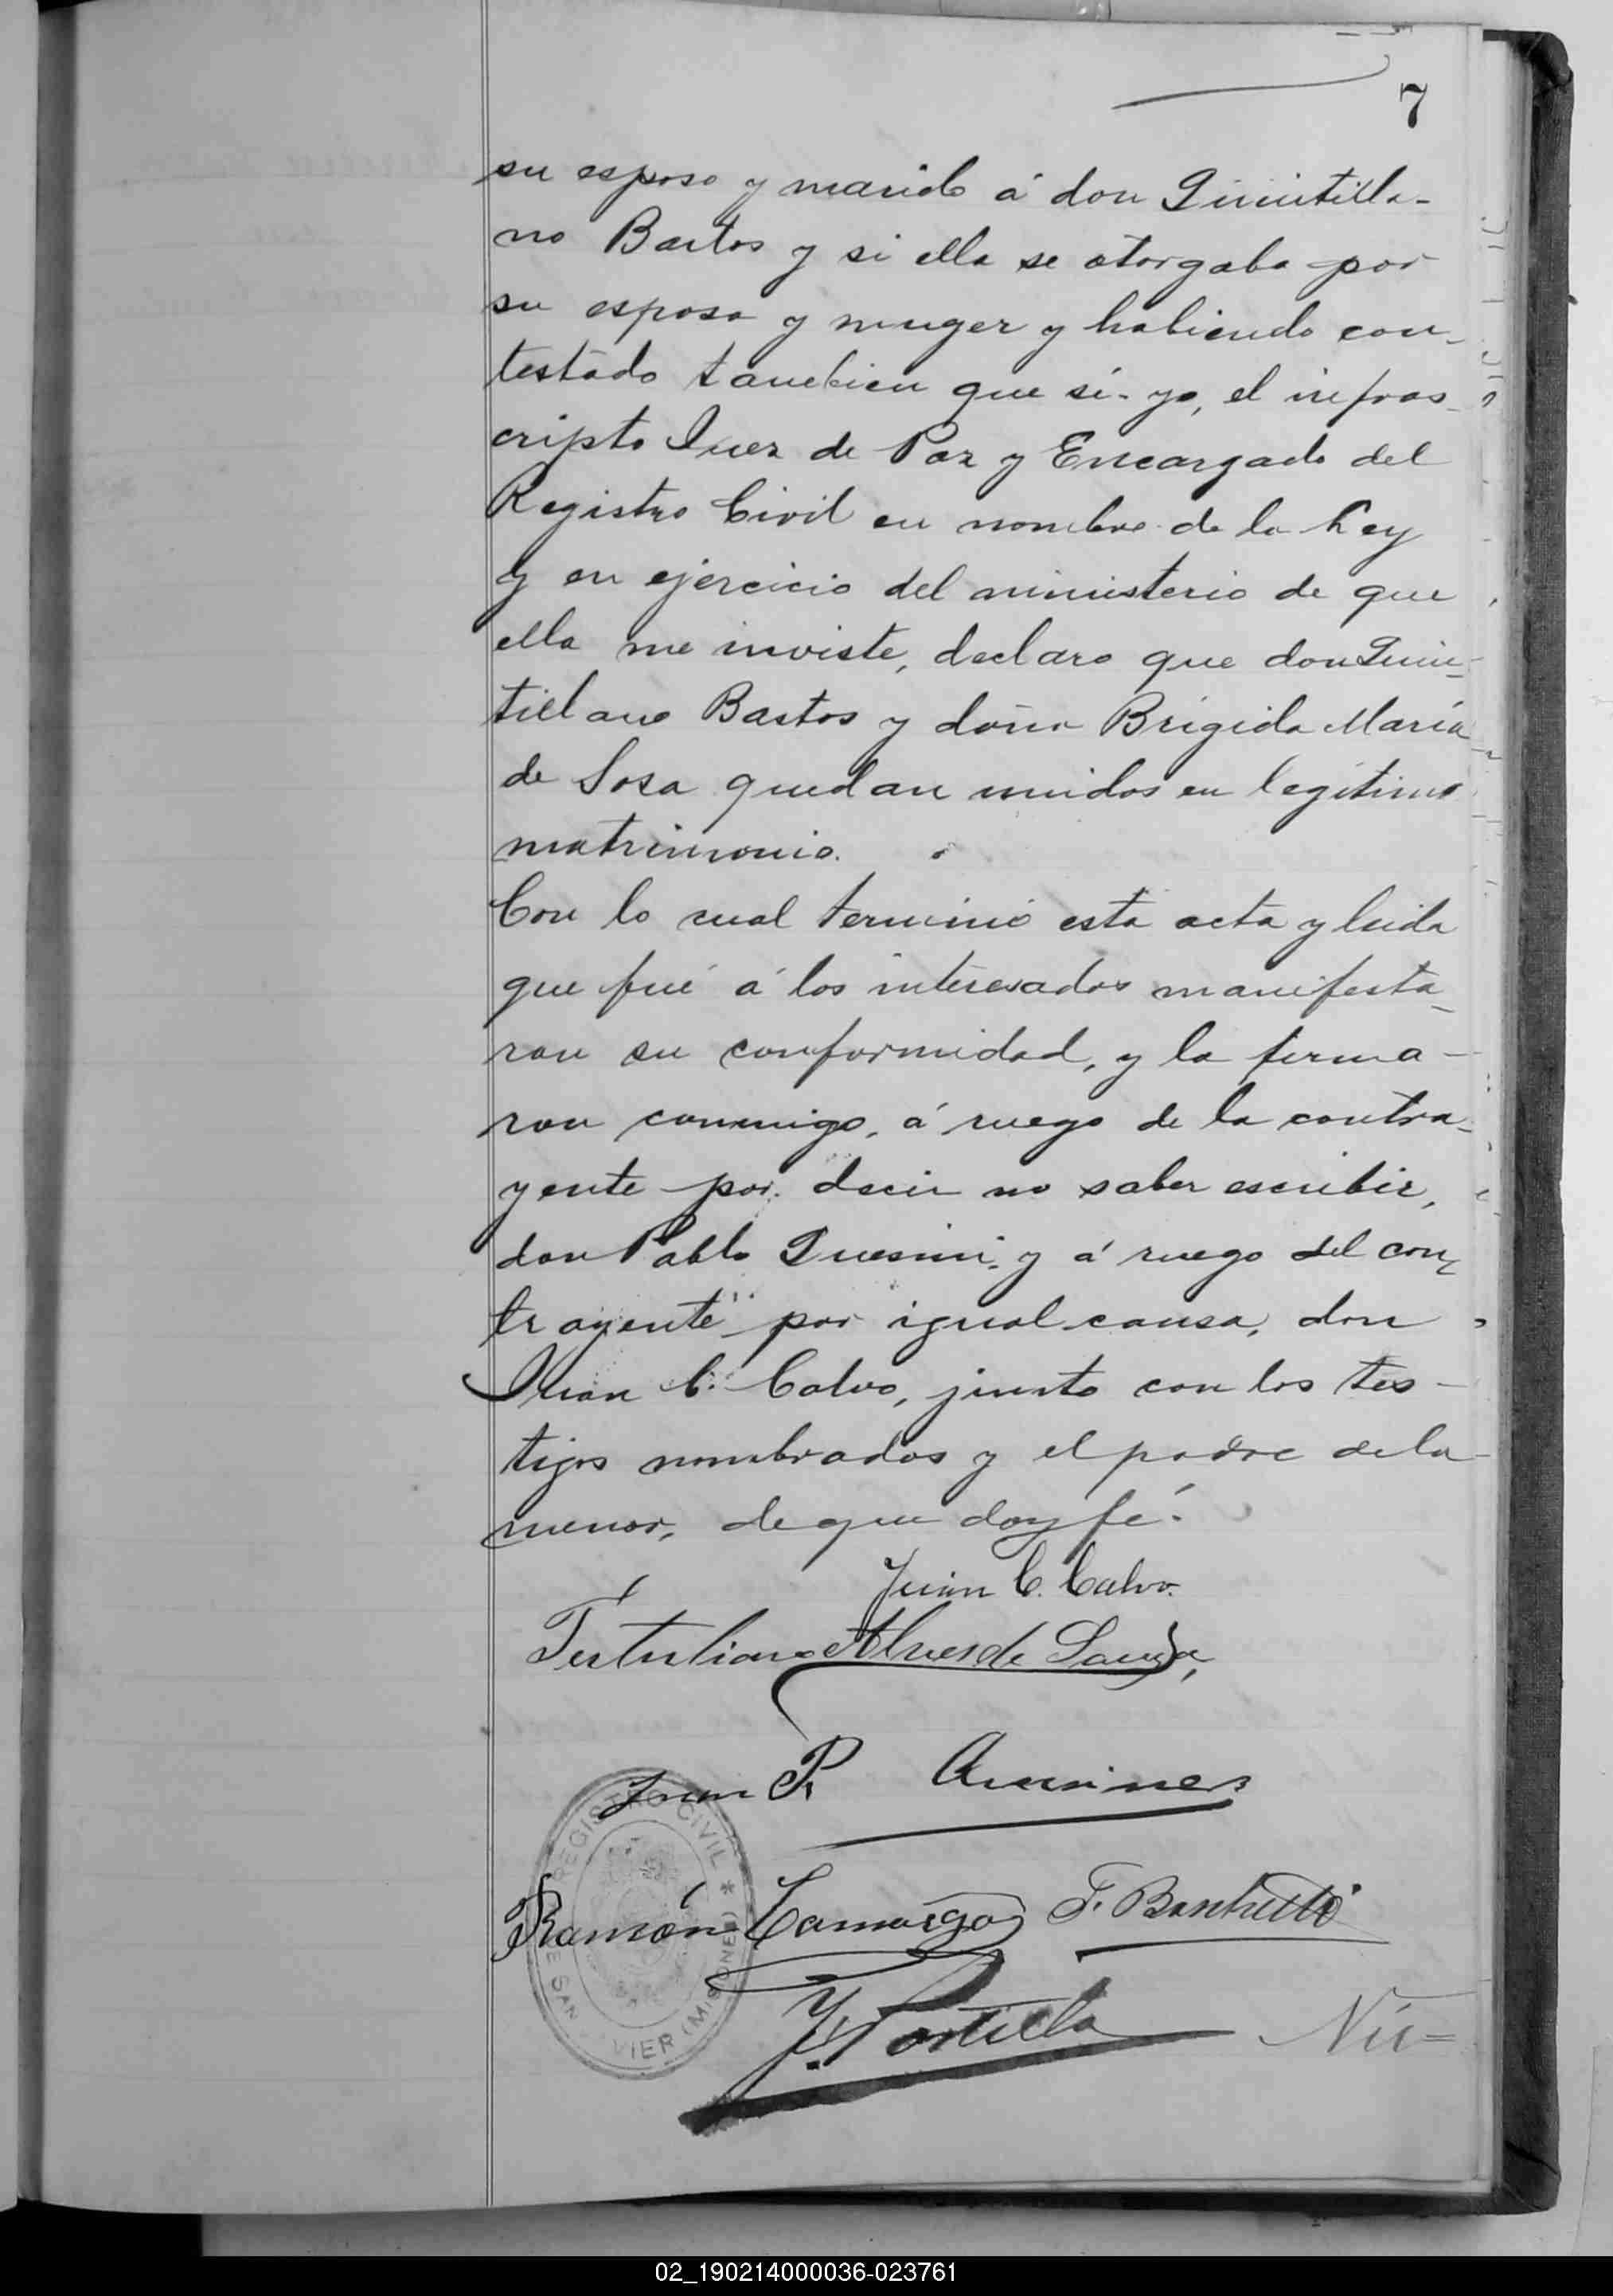 7
su esposo y marido á don Quintilla-
no Bastos y si ella se otorgaba por
su esposa y muger y habiendo con-
testado tambien que sí- yo, el infras-
cripto Juez de Paz y Encargado del
Registro Civil en nombre de la Ley
y en ejercicio del ministerio de que
ella me inviste, declaro que don Quin-
tillano Bastos y doña Brígida María
de Sosa quedan unidos en legítimo
matrimonio.
Con lo cual terminó esta acta y leida
que fué á los interesados manifesta-
ron su conformidad, y la firma-
ron conmigo, á ruego de la contra-
yente por decir no saber escribir,
don Pablo y á ruego del con-
trayente por igual causa, don
Juan C. Calvo, junto con los tes-
tigos nombrados y el padre de la
menor, de que doy fé.
Juan C. Calvo.
Tertuliano Alves de Souza,
Juan P.
Ramón Camargo F.
Y. Portilla
REGISTRO CIVIL * DE SAN VIER (MISIONES)
02_190214000036-023761